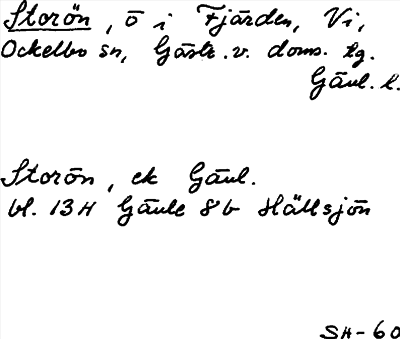 Storön, ö i Fjärden, Vi,
Ockelbo sn, Gästr. v. doms. tg.
Gävl. l.
Storön, ek Gävl.
bl. 13H Gävle 8b Hällsjön
SH-60